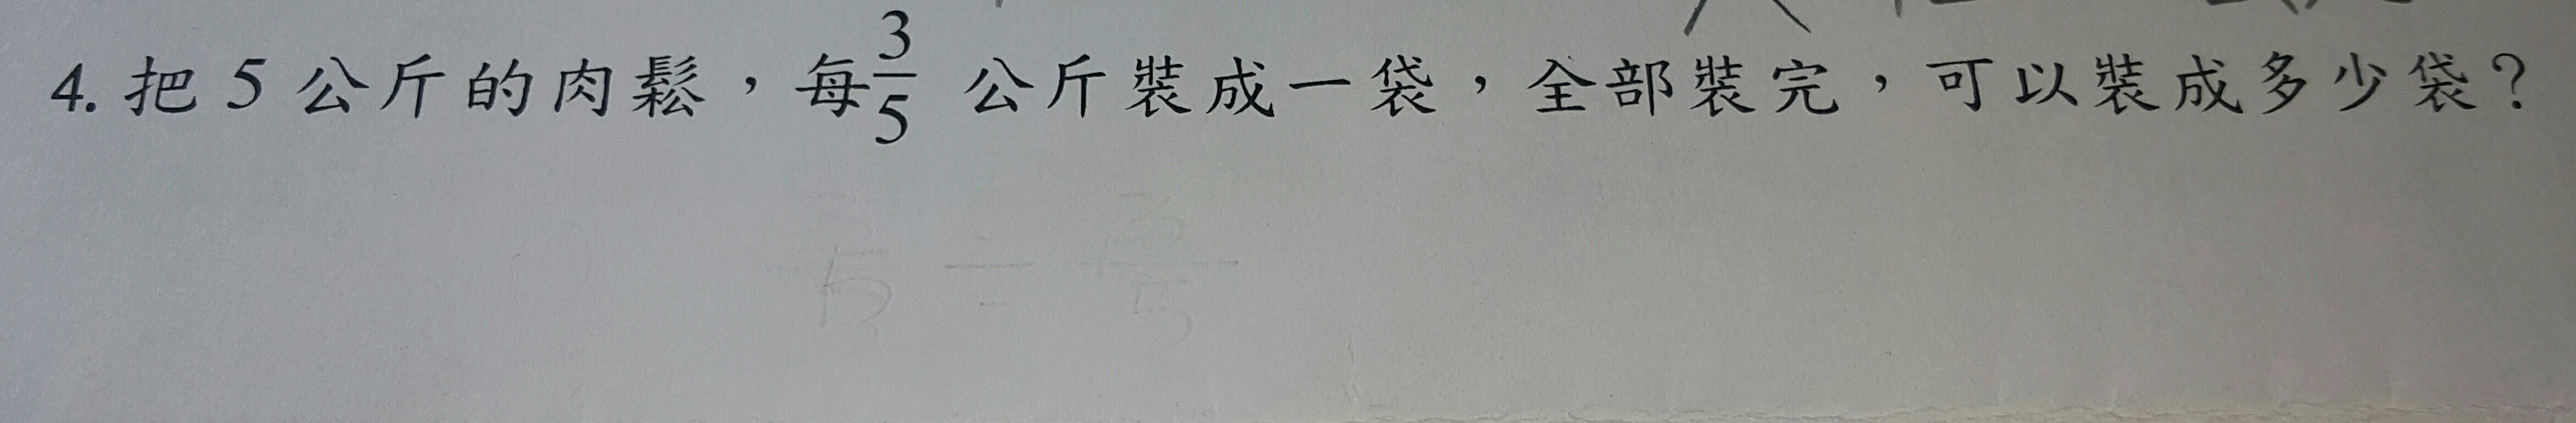 4. 把 5 公斤的肉鬆，每3/5 公斤裝成一袋，全部裝完，可以裝成多少袋？
5 ÷ 3/5